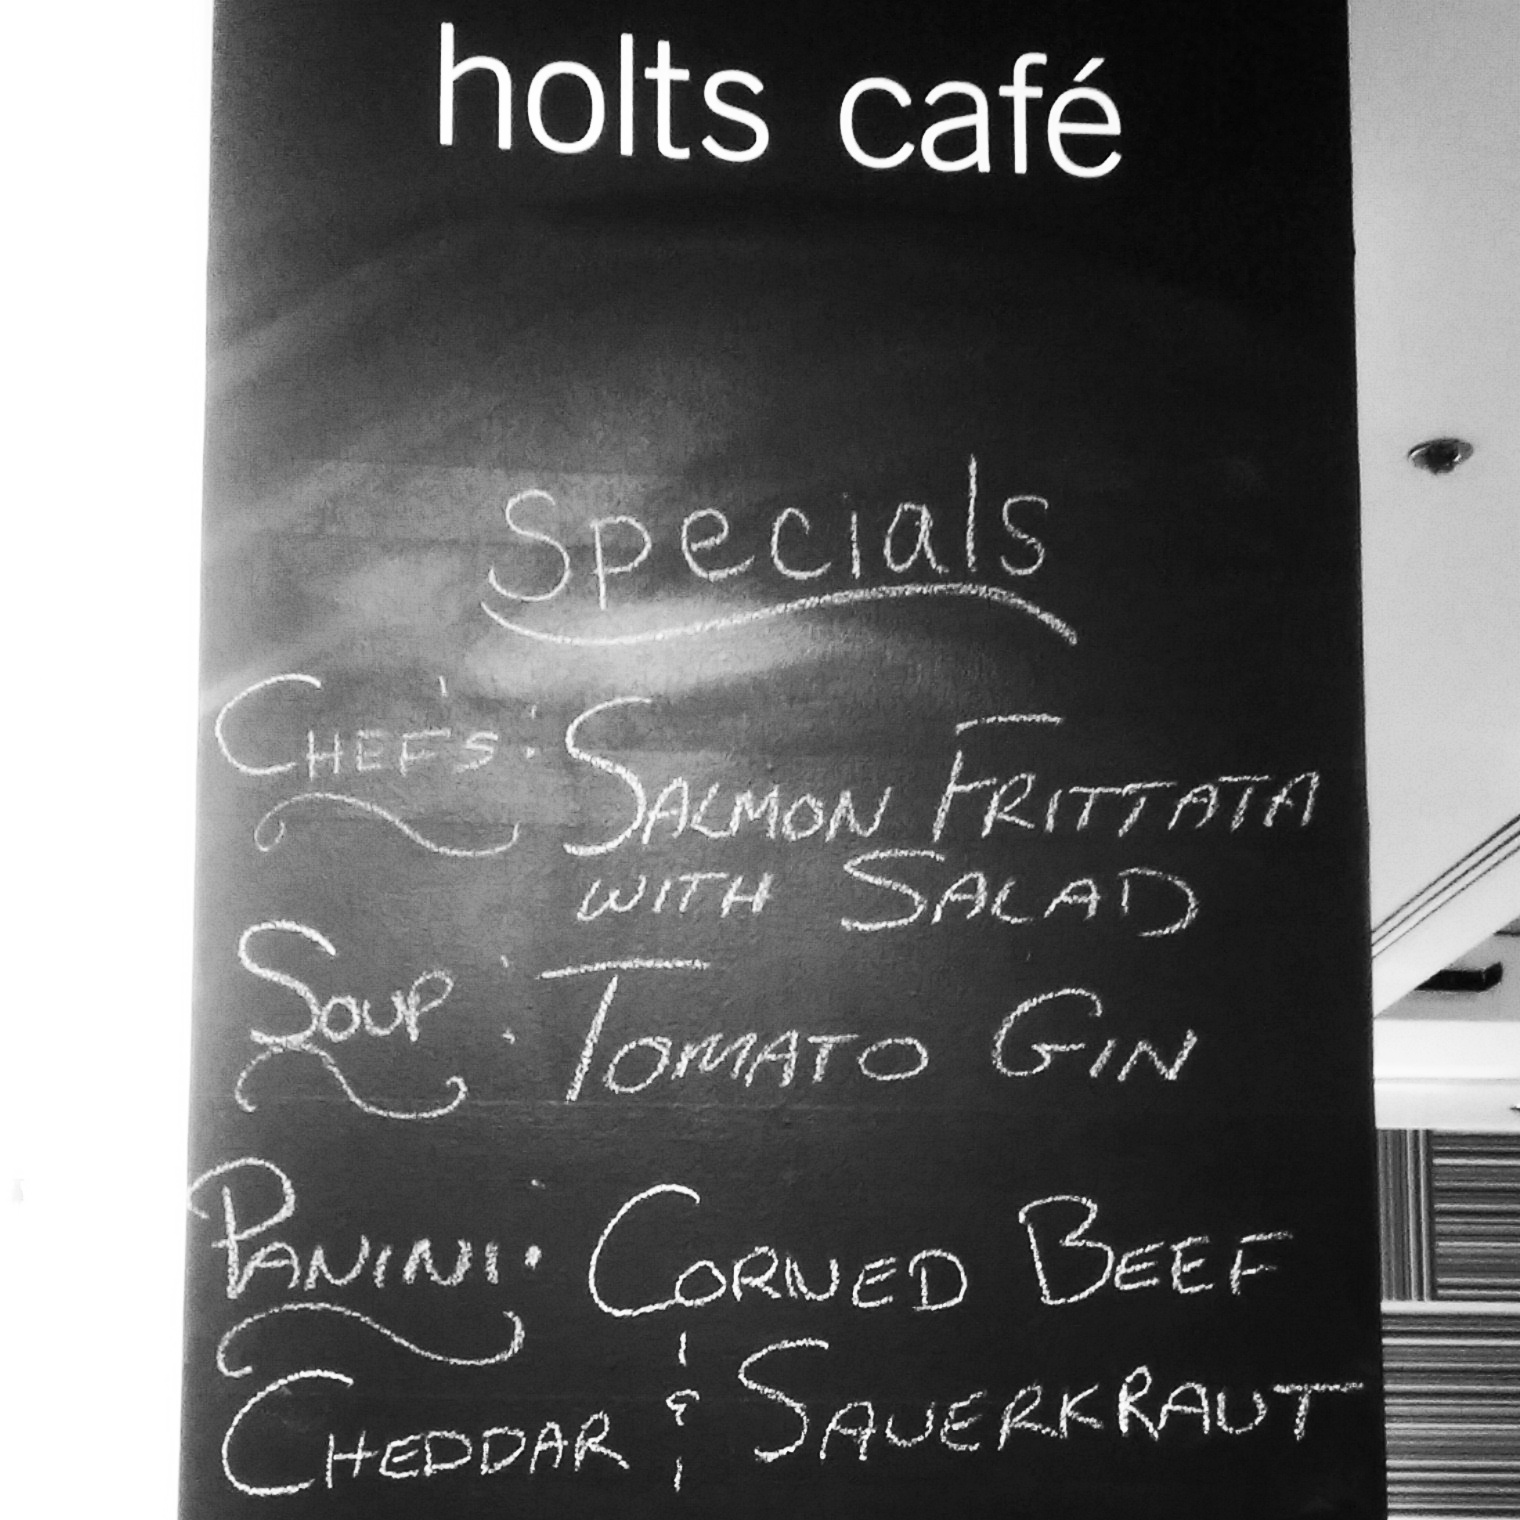 holts café
Specials
CHEF'S: SALMON FRITTATA
WITH SALAD
SOUP: TOMATO GIN
PANINI: CORNED BEEF
CHEDDAR & SAUERKRAUT